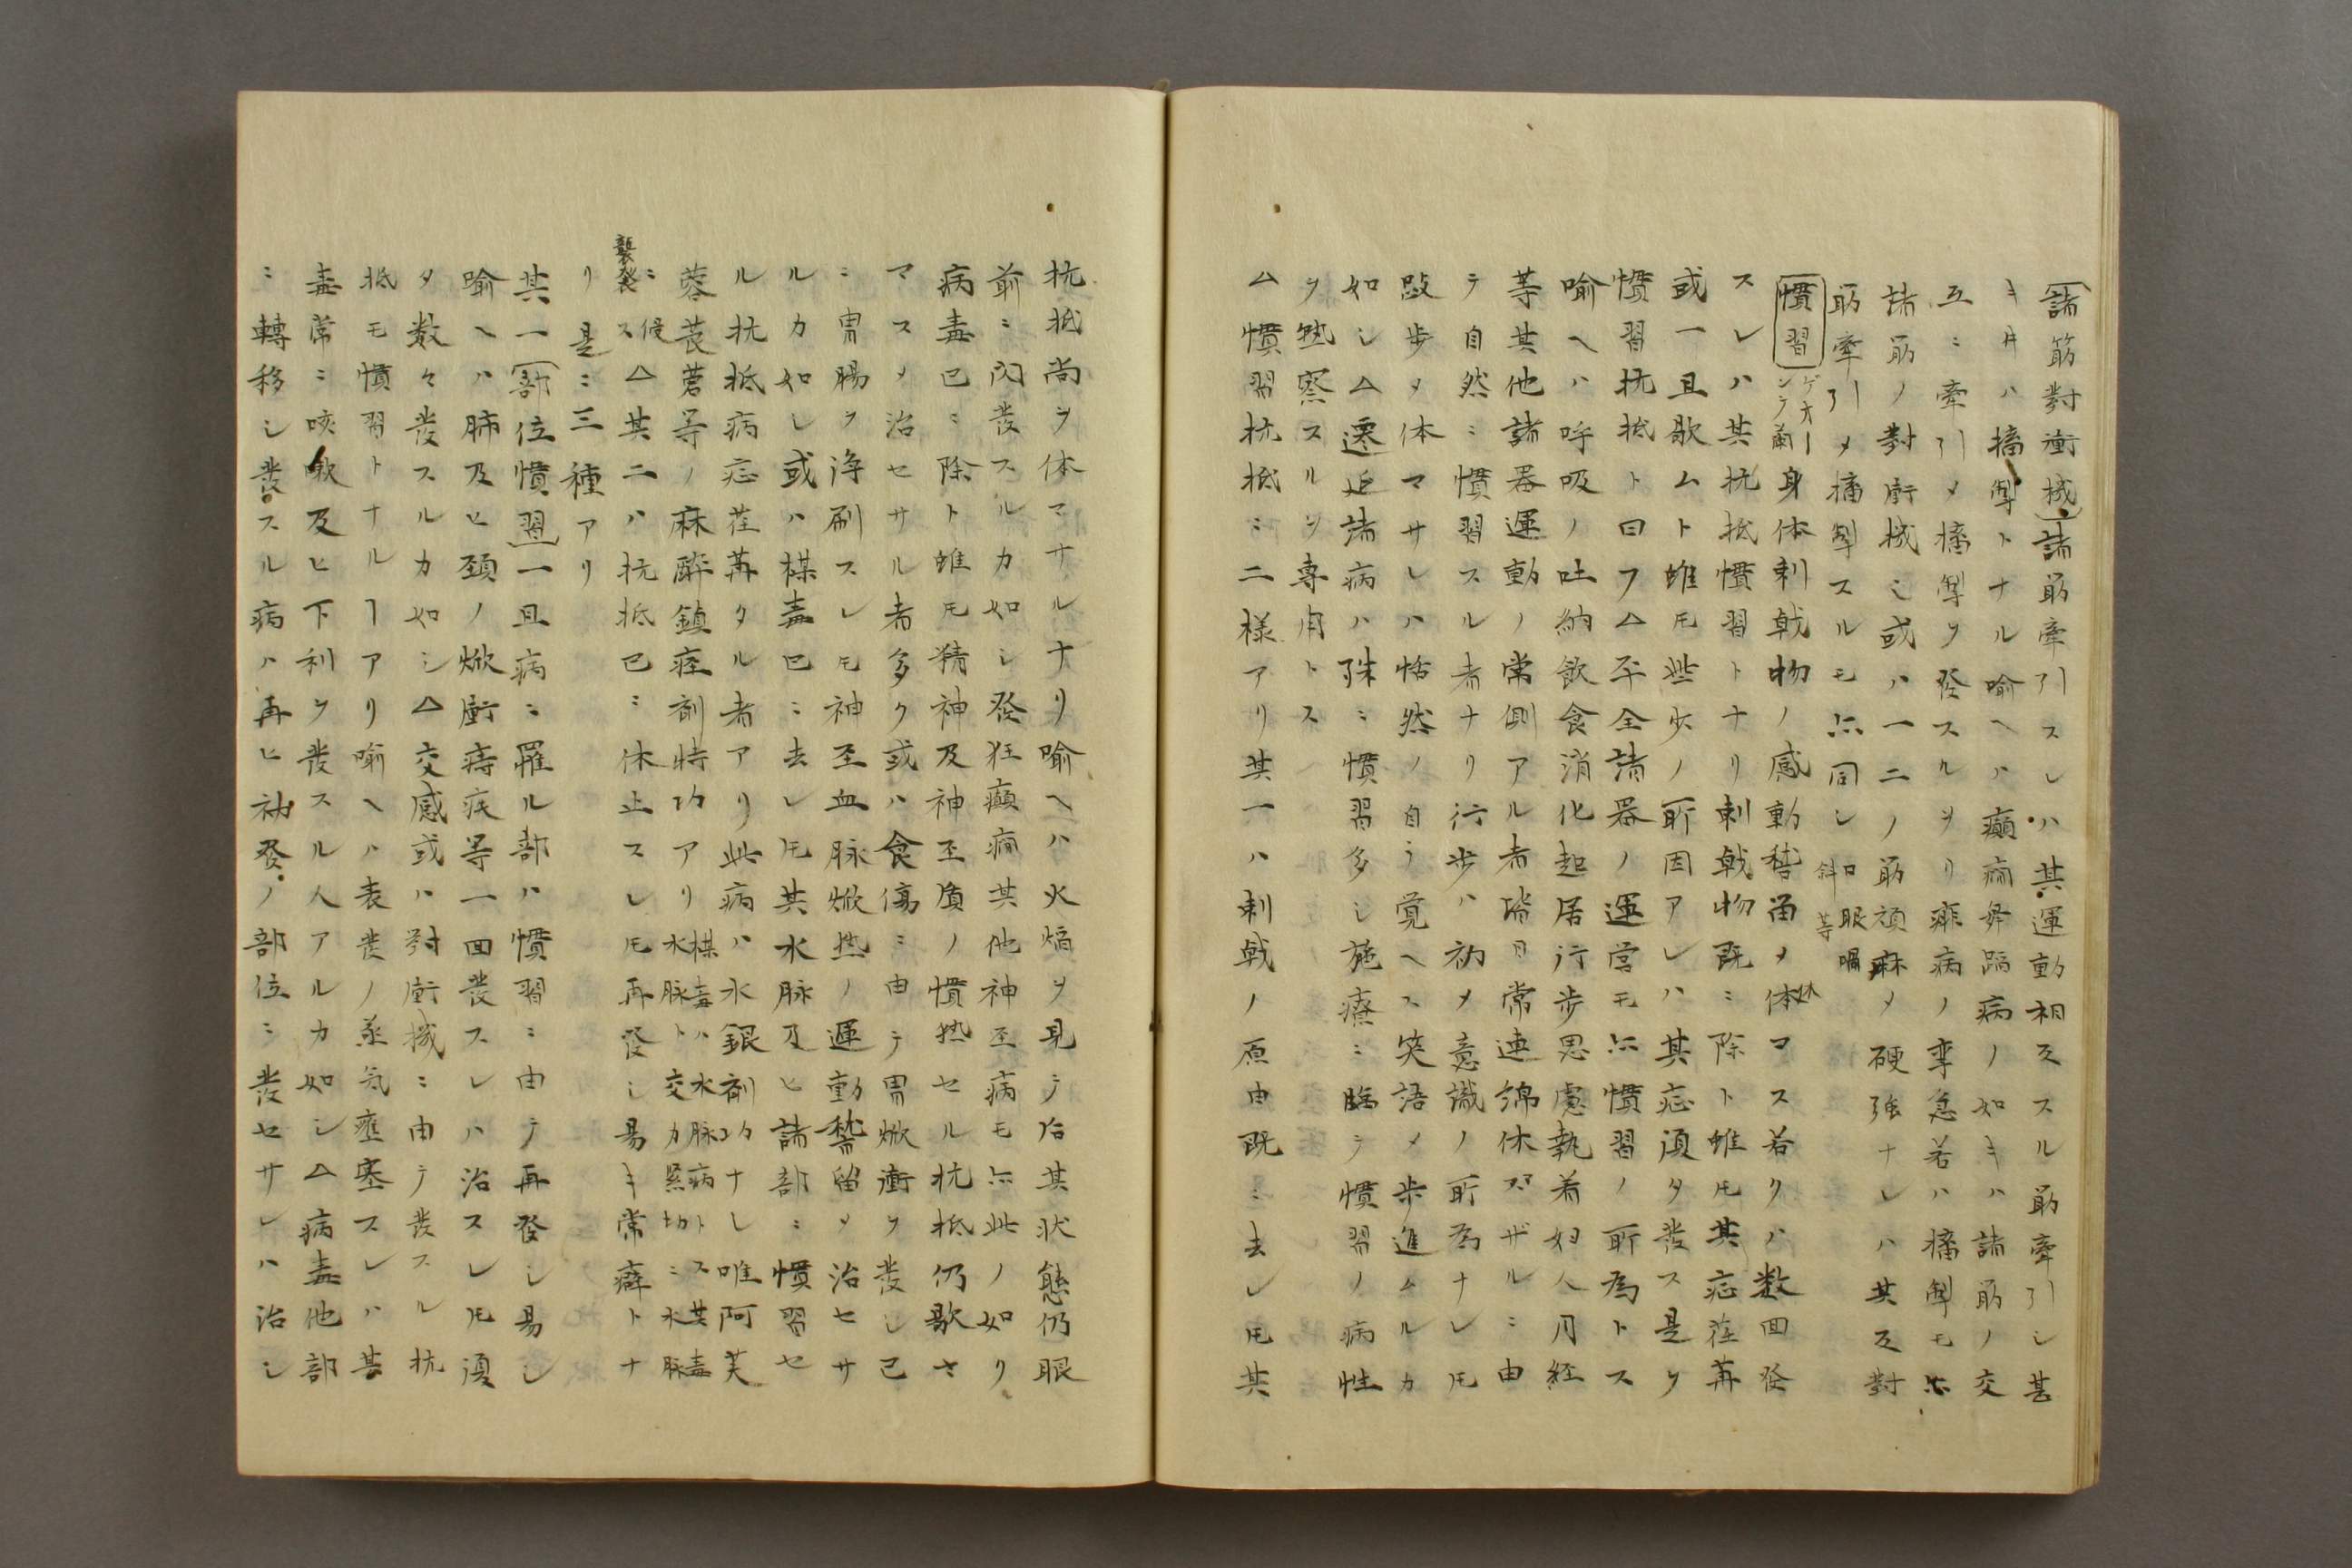 諸筋對衝機諸筋牽引スレハ其運動相及スル筋牽引シ甚
キ井ハ搐掣トナル喩ヘハ癲癇舞蹈病ノ如キハ諸筋ノ交
互ニ牽引メ搐掣ヲ發スルヲリ痱病ノ挛急若ハ搐掣モ亦
諸筋ノ對衝機シ或ハ一二ノ筋頑麻メ硬強ナレハ其反對
筋牽引メ搐掣スルモ亦同シ口眼喎斜等
慣習ゲオーンテ蘭身体刺戟物ノ感動稽留メ休マス若クハ数回發
スレハ其抗抵慣習トナリ刺戟物既ニ除ト雖モ其症荏苒
或一旦歇ムト雖モ些少ノ所因アレハ其症須タ發ス是ヲ
慣習抗抵ト曰フ△平全諸器ノ運営モ亦慣習ノ所為トス
喩ヘハ呼吸ノ吐納飲食消化起居行歩思慮執着妇人月経
等其他諸器運動ノ常側アル者皆日常連綿休ズザルニ由
テ自然ニ慣習スル者ナリ行歩ハ初メ意識ノ所為ナレモ
段歩メ体マサレハ恬然ノ自ラ覚ヘス笑語メ歩進ムルカ
如シ△遷延諸病ハ殊ニ慣習多シ施療ニ臨テ慣習ノ病性
ヲ熟察スルヲ専用トス
△慣習抗抵ニ二様アリ其一ハ刺戟ノ原由既ニ去レモ其
抗抵尚ヲ休マサルナリ喩ヘハ火焔ヲ見テ后其状態仍眼
前ニ閃發スルカ如シ發狂癲癇其他神经病モ亦此ノ如リ
病毒已ニ除ト雖モ精神及神经質ノ慣熟セル抗抵仍歇サ
マスメ治セサル者多ク或ハ食傷ニ由テ胃焮衝ヲ發シ已
ニ胃腸ヲ浄刷スレモ神经血脉焮热ノ運動稽留メ治セサ
ルカ如シ或ハ楳毒已ニ去レモ其水脉及ヒ諸部ニ慣習セ
ル抗抵病症荏苒タル者アリ此病ハ水銀剤功ナレ唯阿芙
蓉莨菪等ノ麻醉鎮痙剤特功アリ楳毒ハ水脉病トス其毒水脉ト交力緊切ニ水脉
ニ侵襲ス△其二ハ抗抵已ニ休止スレモ再發シ易キ常癖トナ
リ是ニ三種アリ
其一部位慣習一旦病ニ罹ル部ハ慣習ニ由テ再發シ易シ
喩ヘハ肺及ヒ頚ノ焮衝痔疾等一回發スレハ治スレモ須
タ数々發スルカ如シ△交感或ハ對衝機ニ由テ發スル抗
抵モ慣習トナルヿアリ喩ヘハ表發ノ蒸気壅塞スレハ其
毒常ニ咳嗽及ヒ下利ヲ發スル人アルカ如シ△病毒他部
ニ轉移シ發スル病ハ再ヒ初發ノ部位ニ發セサレハ治シ